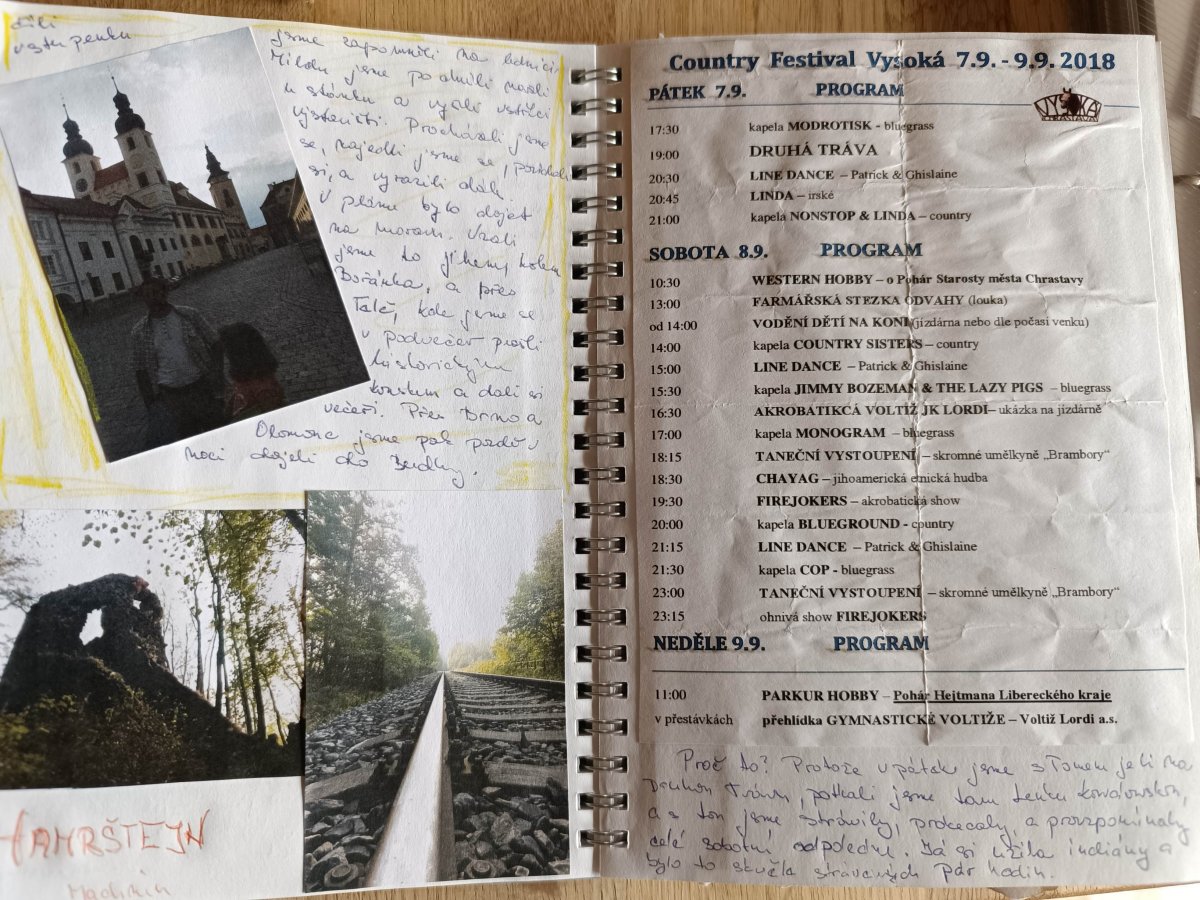 dali
vstupenku
jsme zapomněli na lednici.
Milou jsme podnikli
u stánku a vyšli vstříc
Procházeli jsme
se, najedli jsme se,
si, a vyrazili dál.
V plánu bylo dojet
na Moravu. Vzali
jsme to jihem, kolem
Bořánka, a přes
Telč, kde jsme se
v podvečer prošli
historickým
a dali si
večeři. Přes Brno a
Olomouc jsme pak pozdě v
noci dojeli do
HAMRŠTEJN
Country Festival Vysoká 7.9. - 9.9. 2018
PÁTEK 7.9. PROGRAM
VYSOKÁ
17:30 kapela MODROTISK - bluegrass
19:00 DRUHÁ TRÁVA
20:30 LINE DANCE – Patrick & Ghislaine
20:45 LINDA – irské
21:00 kapela NONSTOP & LINDA – country
SOBOTA 8.9. PROGRAM
10:30 WESTERN HOBBY – o Pohár Starosty města Chrastavy
13:00 FARMÁŘSKÁ STEZKA ODVAHY (louka)
od 14:00 VODĚNÍ DĚTÍ NA KONI (jízdárna nebo dle počasí venku)
14:00 kapela COUNTRY SISTERS – country
15:00 LINE DANCE – Patrick & Ghislaine
15:30 kapela JIMMY BOZEMAN & THE LAZY PIGS – bluegrass
16:30 AKROBATIKCÁ VOLTIŽ JK LORDI– ukázka na jízdárně
17:00 kapela MONOGRAM – bluegrass
18:15 TANEČNÍ VYSTOUPENÍ – skromné umělkyně „Brambory“
18:30 CHAYAG – jihoamerická etnická hudba
19:30 FIREJOKERS – akrobatická show
20:00 kapela BLUEGROUND - country
21:15 LINE DANCE – Patrick & Ghislaine
21:30 kapela COP - bluegrass
23:00 TANEČNÍ VYSTOUPENÍ – skromné umělkyně „Brambory“
23:15 ohnivá show FIREJOKERS
NEDĚLE 9.9. PROGRAM
11:00 PARKUR HOBBY – Pohár Hejtmana Libereckého kraje
v přestávkách přehlídka GYMNASTICKÉ VOLTIŽE – Voltiž Lordi a.s.
Proč to? Protože v pátek jsme s Tomem jeli na
Druhou Trávu, potkali jsme tam Lenku
a s ton jsme strávily, prokecaly, a provzpomínaly
celé sobotní odpoledne. Já si užila indiány a
bylo to skvěle strávených pár hodin.